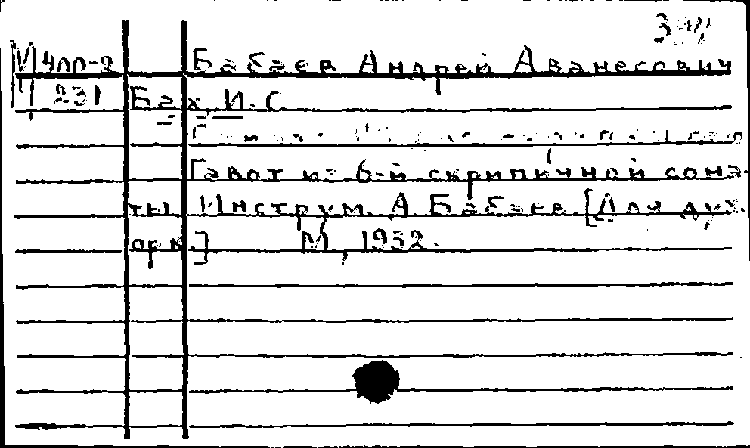 М 400-2 Бабаев Андрей Аванесович
231 Бах, И. С.
Гавот из 6-й скрипичной сона-
ты. Инструм. А Бабаева [Для дух.
орк.] М., 1932.